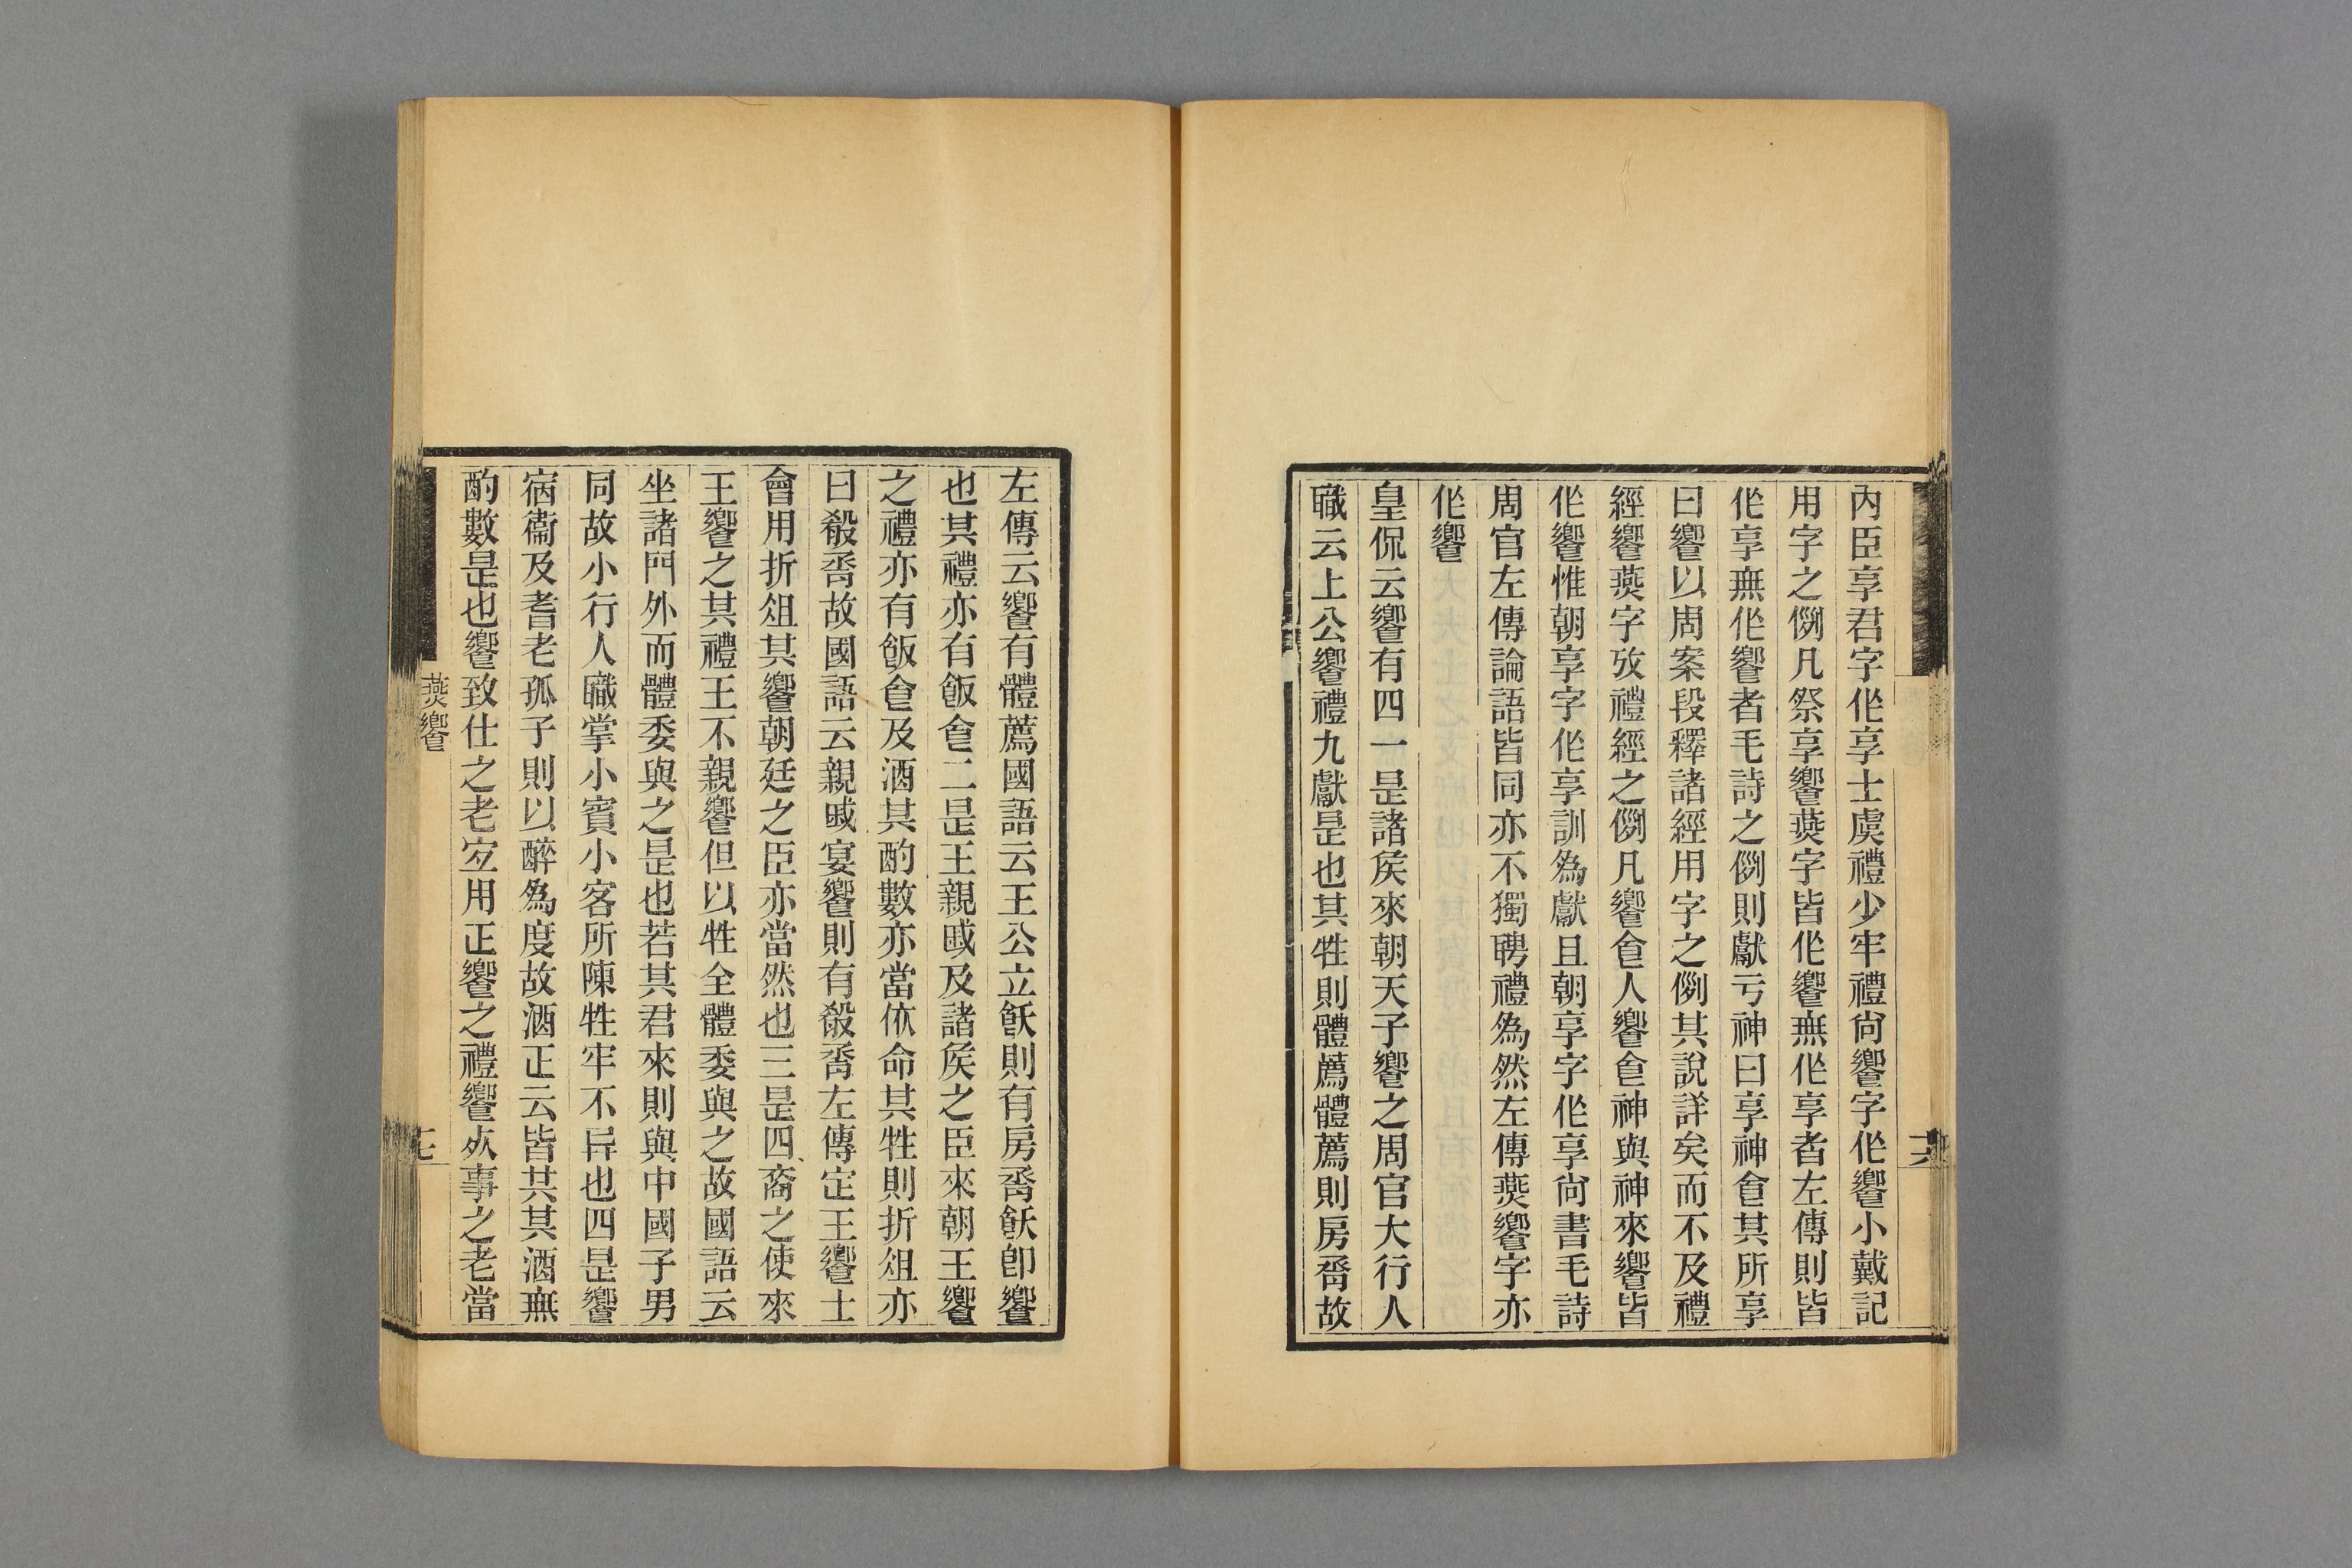 內臣享君字作享士虞禮少牢禮尙饗字作饗小戴記
用字之例凡祭享饗燕字皆作饗無作享者左傳則皆
作享無作饗者毛詩之例則獻亏神曰享神食其所享
曰饗以周案段釋諸經用字之例其說詳矣而不及禮
經饗燕字攷禮經之例凡饗食人饗食神與神來饗皆
作饗惟朝享字作享訓爲獻且朝享字作享尙書毛詩
周官左傳論語皆同亦不獨聘禮爲然左傳燕饗字亦
作饗
皇侃云饗有四一是諸矦來朝天子饗之周官大行人
職云上公饗禮九獻是也其牲則體薦體薦則房脀故
十六
左傳云饗有體薦國語云王公立飫則有房脀飫卽饗
也其禮亦有飯食二是王親戚及諸矦之臣來朝王饗
之禮亦有飯食及酒其酌數亦當依命其牲則折俎亦
曰殽脀故國語云親戚宴饗則有殽脀左傳定王饗士
會用折俎其饗朝廷之臣亦當然也三是四裔之使來
王饗之其禮王不親饗但以牲全體委與之故國語云
坐諸門外而體委與之是也若其君來則與中國子男
同故小行人職掌小賓小客所陳牲牢不异也四是饗
宿衞及耆老孤子則以醉爲度故酒正云皆共其酒無
酌數是也饗致仕之老宐用正饗之禮饗死事之老當
燕饗
十七